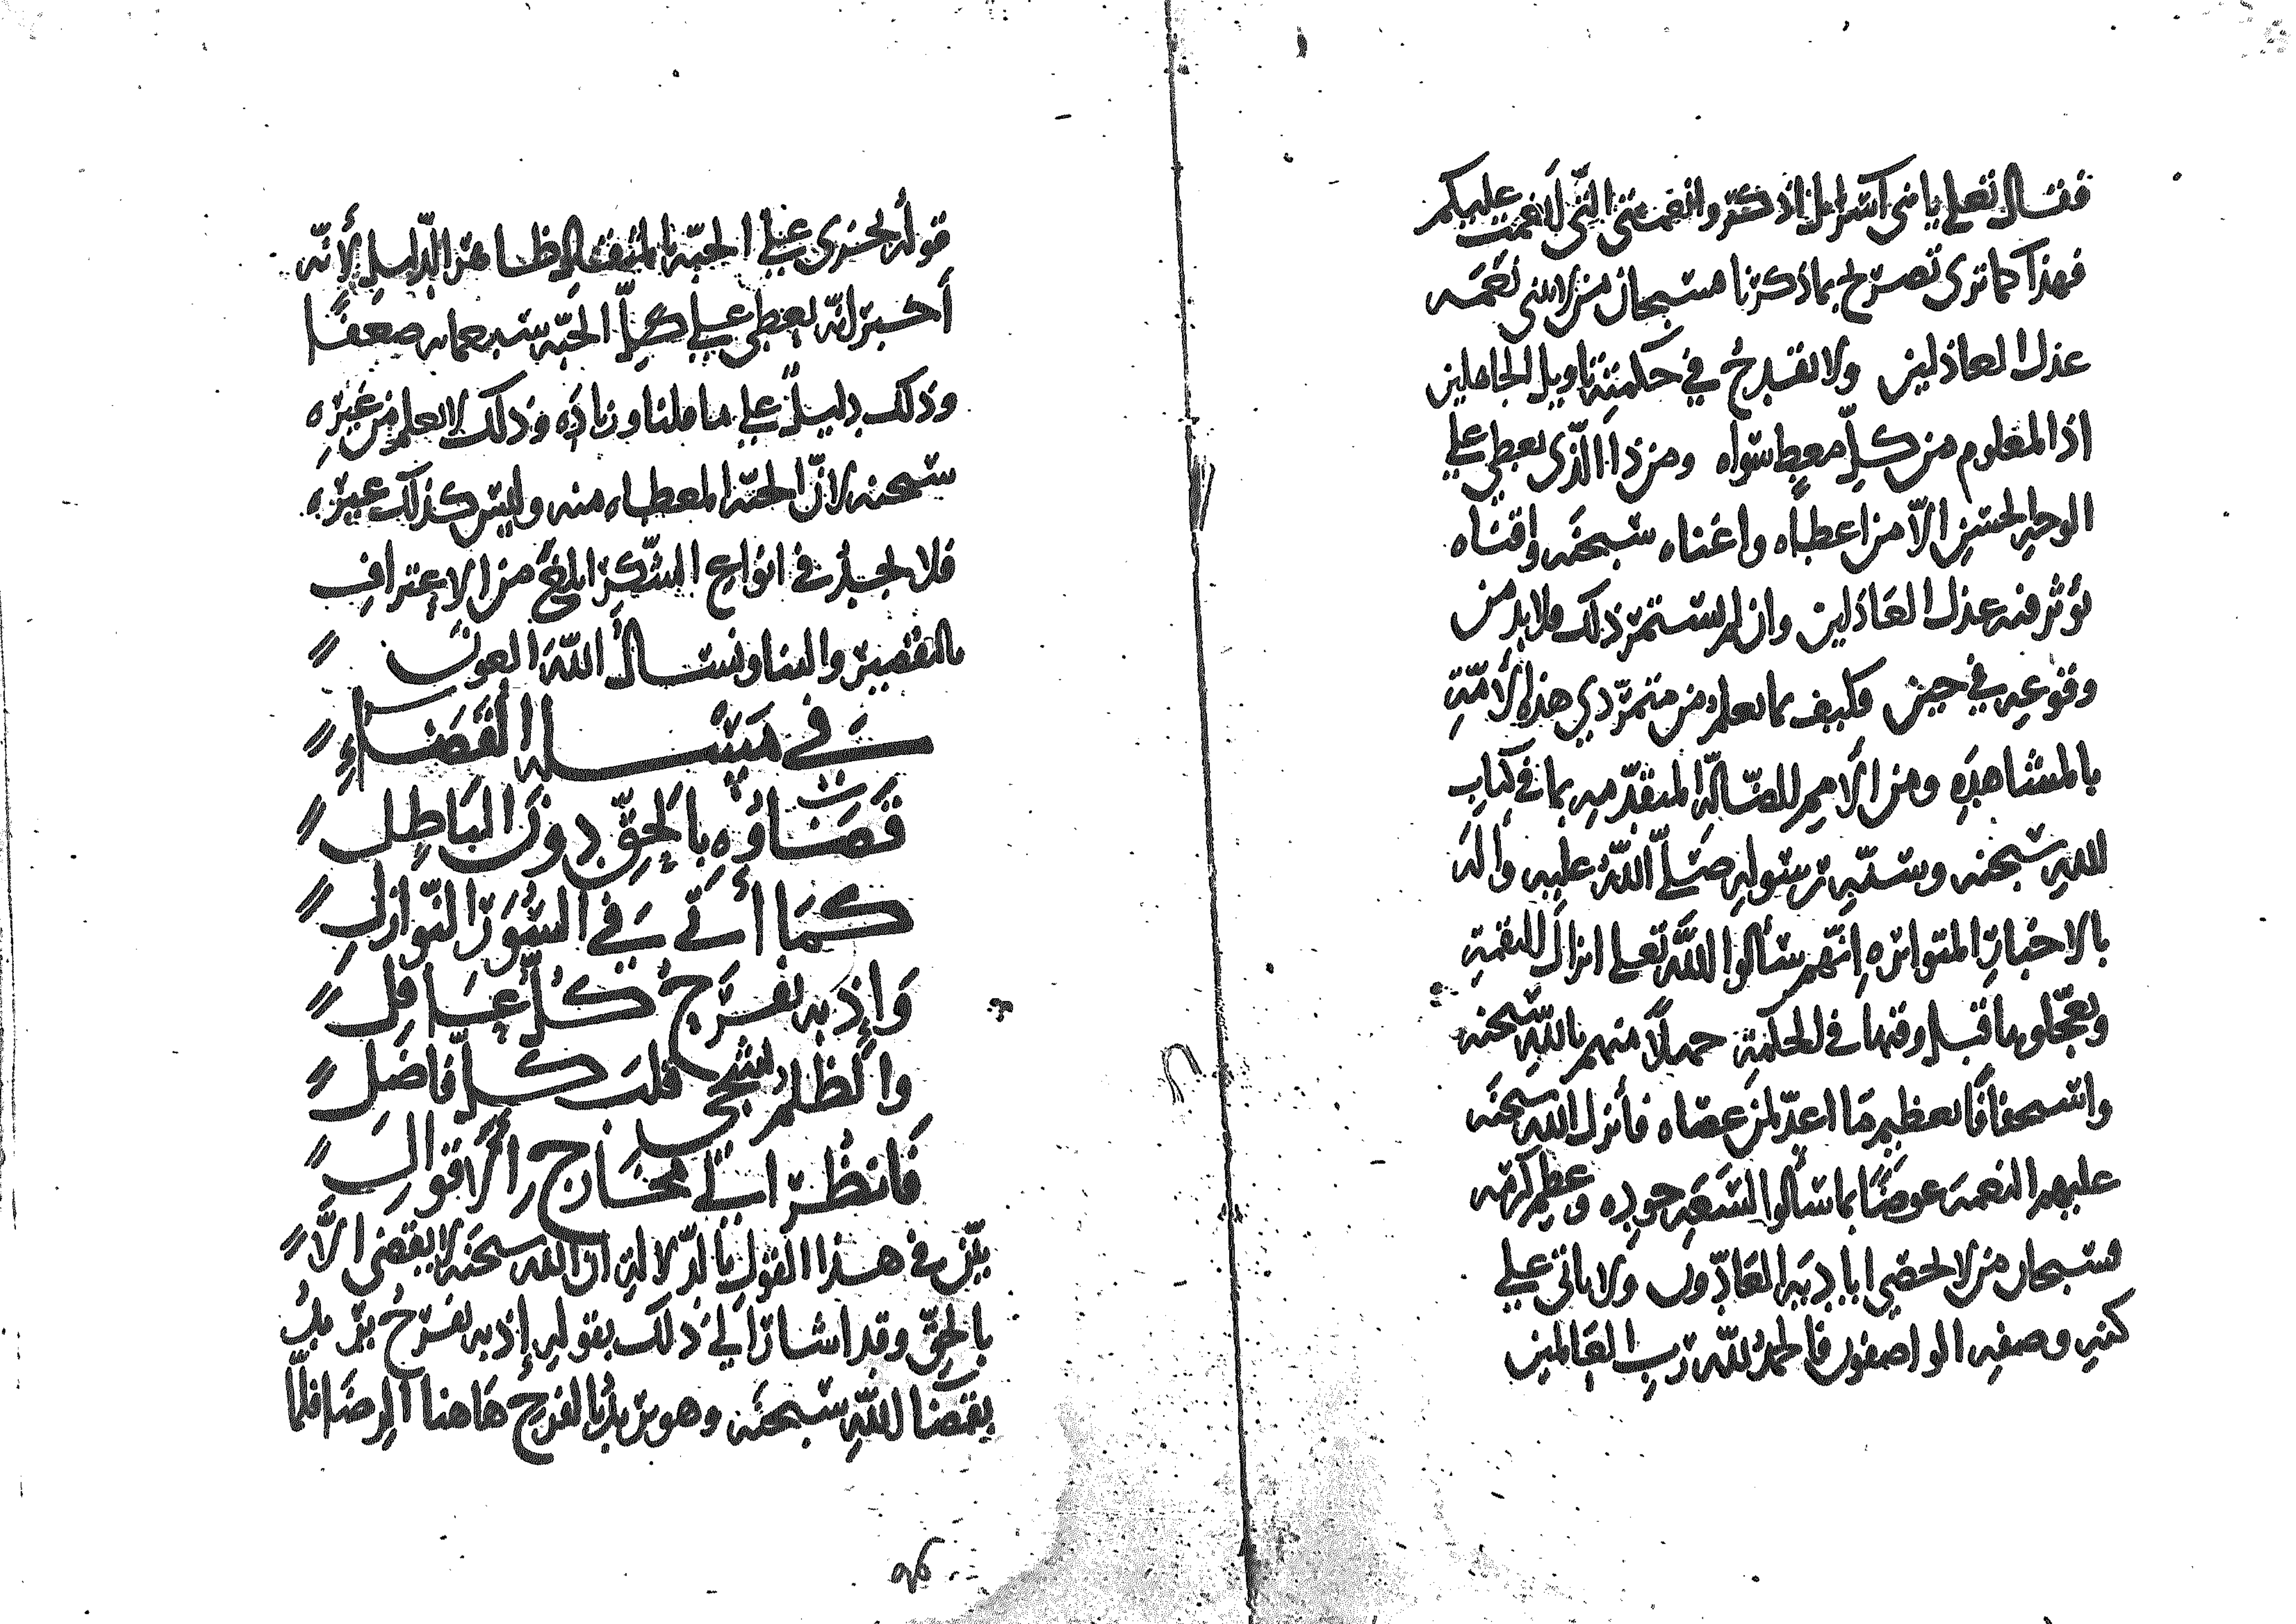 فقال تعلى يا بني اسرايل اذكروا نعمتي التي انعمت عليكم
فهذا كما ترى تصريح بما ذكرنا فسبحان من لا يثني نعمه
عذل العاذلين ولا تقدح في حكمته تاويل الجاهلين
اذ المعلوم من كل معط سواه ومن ذا الذي يعطي على
الوجه الحسن الا من اعطاه واغناه سبحنه واقناه
يؤثر فيه عذل العاذلين وان لم يستمر ذلك فلا بد من
وقوعه في حين فكيف بما يعلم من متمردي هذه الأمة
بالمشاهده ومن الأمم الضالة المتقدمه بما في كتاب
الله سبحنه وسنة رسوله صلى الله عليه واله
بالاخبار المتواتره انهم سألوا الله تعلى انزال النقمة
وتعجلوها قبل وقتها في الحكمة جهلا منهم بالله سبحنه
واستحقاقا لعظيم ما اعد لمن عصاه فأنزل الله سبحنه
عليهم النعمة عوضا بما سألوا لسعة جوده وعظم كرمه
فسبحان من لا يحصي اياديه العادون ولا ياتي على
كنه وصفه الواصفون فالحمد لله رب العالمين
قوله يجزى على الحبة بالمثقال ظاهر الدليل لأنه
أخبر انه يعطي على كل الحبة سبعمايه ضعفا
وذلك دليل على ما قلنا وزياده وذلك لا يعلم من غيره
سبحنه لان الحبة المعطاه منه وليس كذلك غيره
فلا نجد في انواع الشكر ابلغ من الاعتراف
بالتقصير والثنا ونسأل الله العون
في مسألة القضاء
قضاؤه بالحق دون الباطل
كما أتى في السور النوازل
وإذ به يفرح كل عاقل
والظلم يشجي قلب كل فاضل
فانظر الى مخارج الأقوال
بين في هذا القول بالدلالة ان الله سبحنه لا يقضي الا
بالحق وقد اشار الى ذلك بقوله إذ به يفرح يريد
بقضا الله سبحنه وهو يريد بالفرح هاهنا الرضا فلما